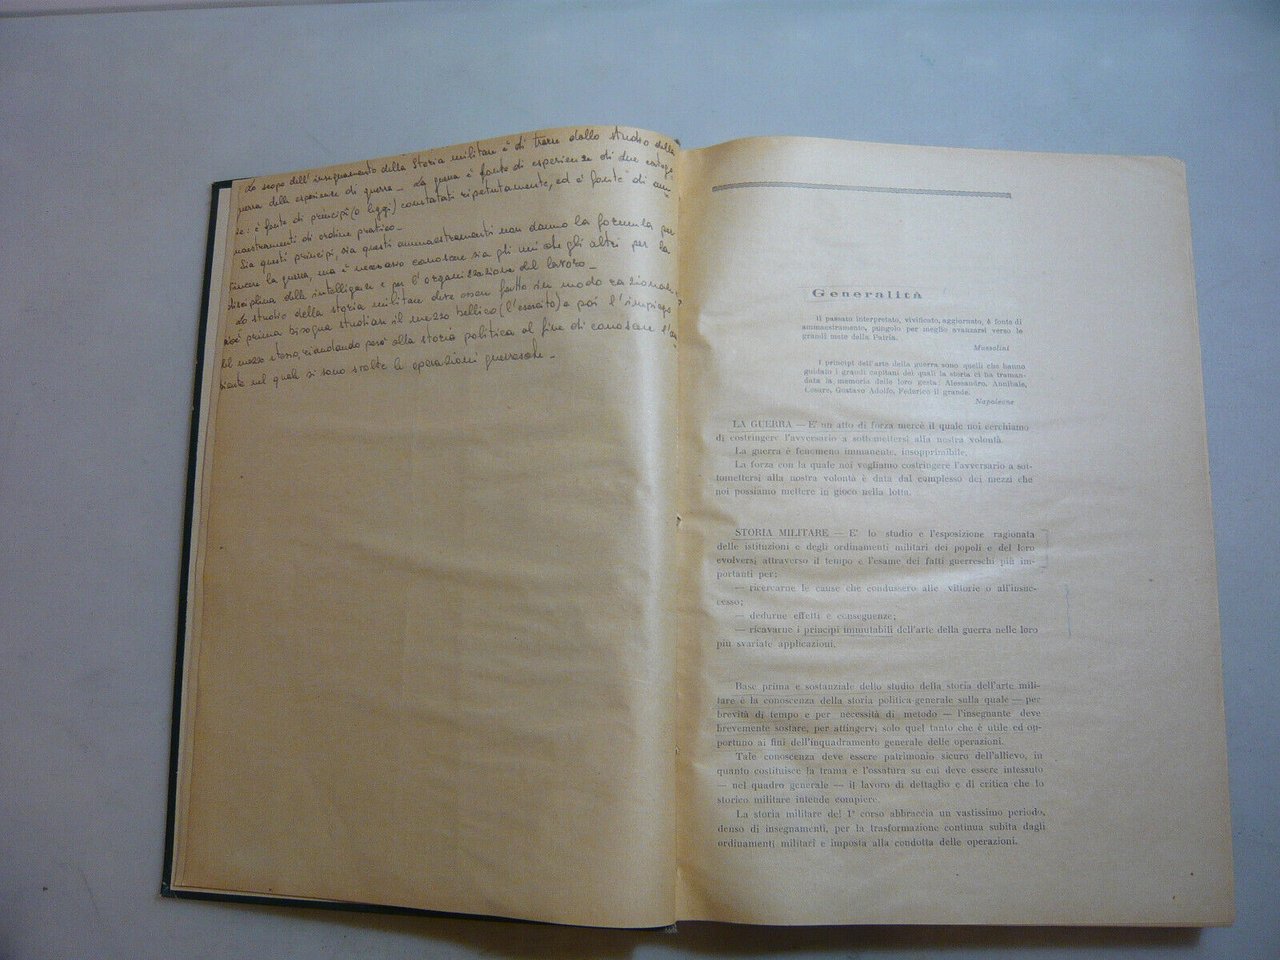 Lo scopo dell'insegnamento della Storia militare è di trarre dallo studio della
guerra delle esperienze di guerra — La guerra è fonte di esperienze di due catego
rie: è fonte di principi (o leggi) constatati ripetutamente, ed è fonte di am
maestramenti di ordine pratico —
Sia questi principi, sia questi ammaestramenti non danno la formula per
vincere la guerra, ma è necessario conoscere sia gli uni che gli altri per la
disciplina delle intelligenze e per l'organizzazione del lavoro —
Lo studio della storia militare deve esser fatto in modo razionale,
cioè prima bisogna studiare il mezzo bellico (l'esercito) e poi l'impiego
del mezzo stesso, rimandando però alla storia politica al fine di conoscere l'am
biente nel quale si sono svolte le operazioni guerresche —
Generalità
Il passato interpretato, vivificato, aggiornato, è fonte di
ammaestramento, pungolo per meglio avanzarsi verso le
grandi mete della Patria.
Mussolini
I principi dell'arte della guerra sono quelli che hanno
guidato i grandi capitani dei quali la storia ci ha traman-
data la memoria delle loro gesta: Alessandro, Annibale,
Cesare, Gustavo Adolfo, Federico il grande.
Napoleone
LA GUERRA — E' un atto di forza mercè il quale noi cerchiamo
di costringere l'avversario a sottomettersi alla nostra volontà.
La guerra è fenomeno immanente, insopprimibile.
La forza con la quale noi vogliamo costringere l'avversario a sot-
tomettersi alla nostra volontà è data dal complesso dei mezzi che
noi possiamo mettere in gioco nella lotta.
STORIA MILITARE — E' lo studio e l'esposizione ragionata
delle istituzioni e degli ordinamenti militari dei popoli e del loro
evolversi attraverso il tempo e l'esame dei fatti guerreschi più im-
portanti per:
— ricercarne le cause che condussero alle vittorie o all'insuc-
cesso;
— dedurne effetti e conseguenze;
— ricavarne i principi immutabili dell'arte della guerra nelle loro
più svariate applicazioni.
Base prima e sostanziale dello studio della storia dell'arte mili-
tare è la conoscenza della storia politica generale sulla quale — per
brevità di tempo e per necessità di metodo — l'insegnante deve
brevemente sostare, per attingervi solo quel tanto che è utile ed op-
portuno ai fini dell'inquadramento generale delle operazioni.
Tale conoscenza deve essere patrimonio sicuro dell'allievo, in
quanto costituisce la trama e l'ossatura su cui deve essere intessuto
— nel quadro generale — il lavoro di dettaglio e di critica che lo
storico militare intende compiere.
La storia militare del 1° corso abbraccia un vastissimo periodo,
denso di insegnamenti, per la trasformazione continua subita dagli
ordinamenti militari e imposta alla condotta delle operazioni.